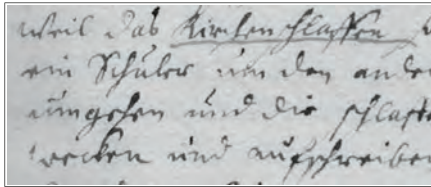 weil das Kirchenschlaffen
ein Schuler um den ander
umgehen und die schlaff
wecken und aufschreiben